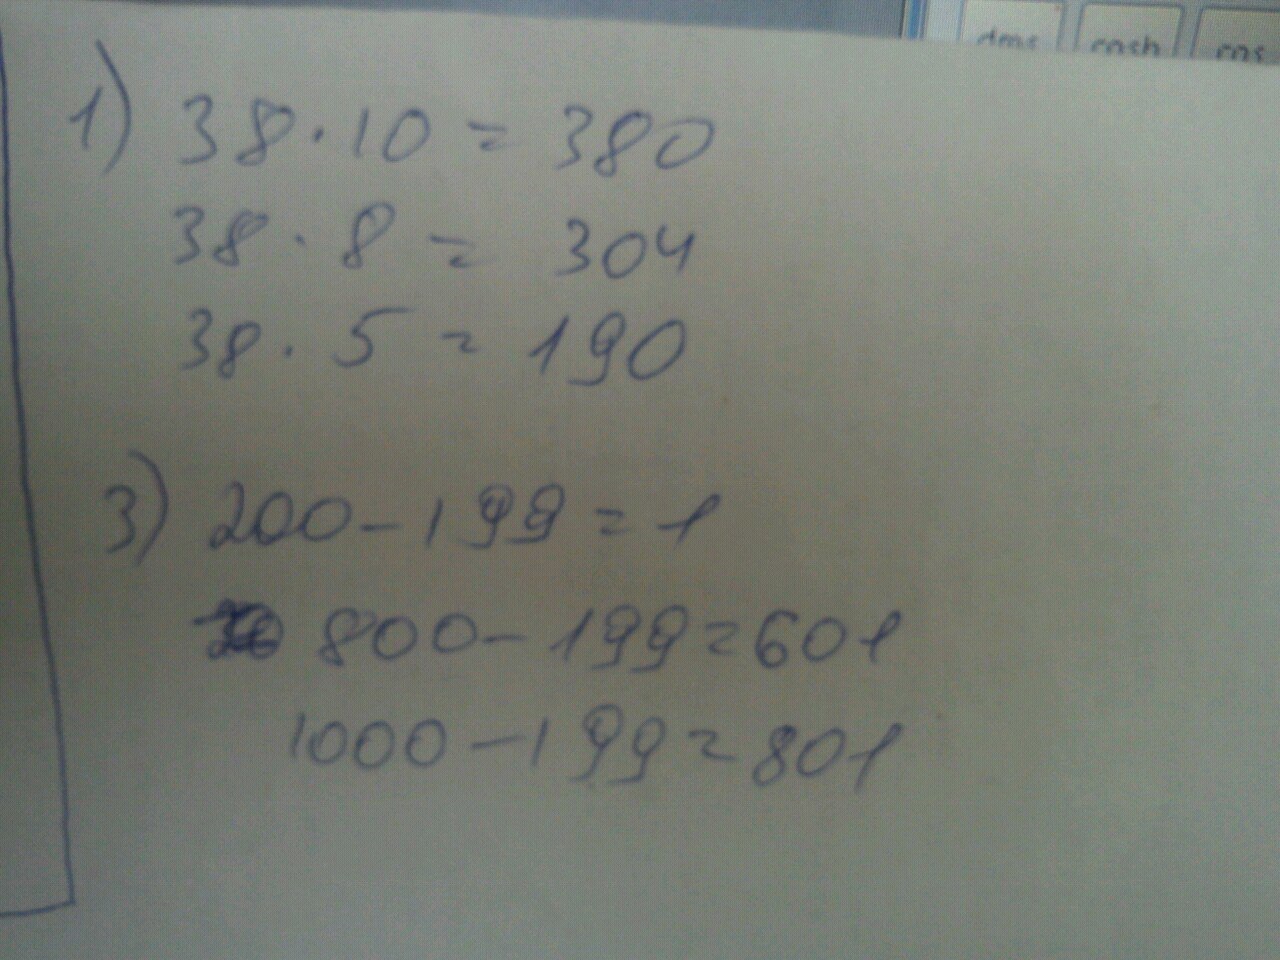 dms cosh cos
1) 38·10=380
38·8=304
38·5=190
3) 200-199=1
800-199=601
1000-199=801